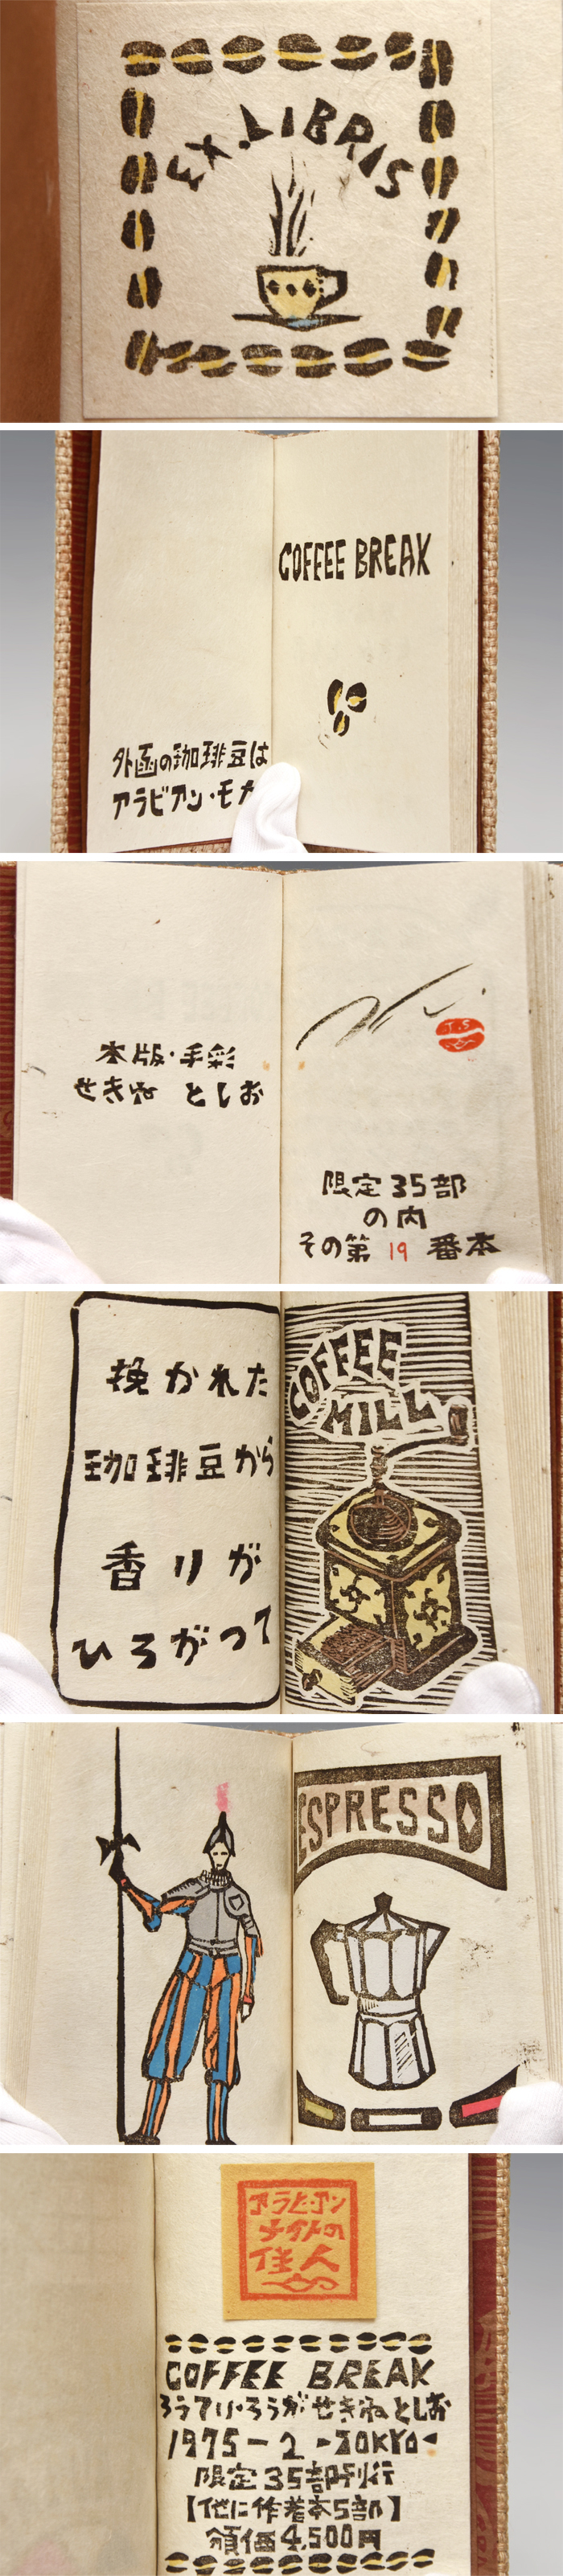 EX.LIBRIS
COFFEE BREAK
外函の珈琲豆は
アラビアン・モカ
木版・手彩
せきね としお
T.S
限定35部
の内
その第 19 番本
挽かれた
珈琲豆から
香りが
ひろがって
COFFEE
MILL
ESPRESSO
アラビアン
ナイトの
佳人
COFFEE BREAK
せきねとしお
1975-2-TOKYO
限定35部刊行
【他に作者本5部】
頒価4,500円